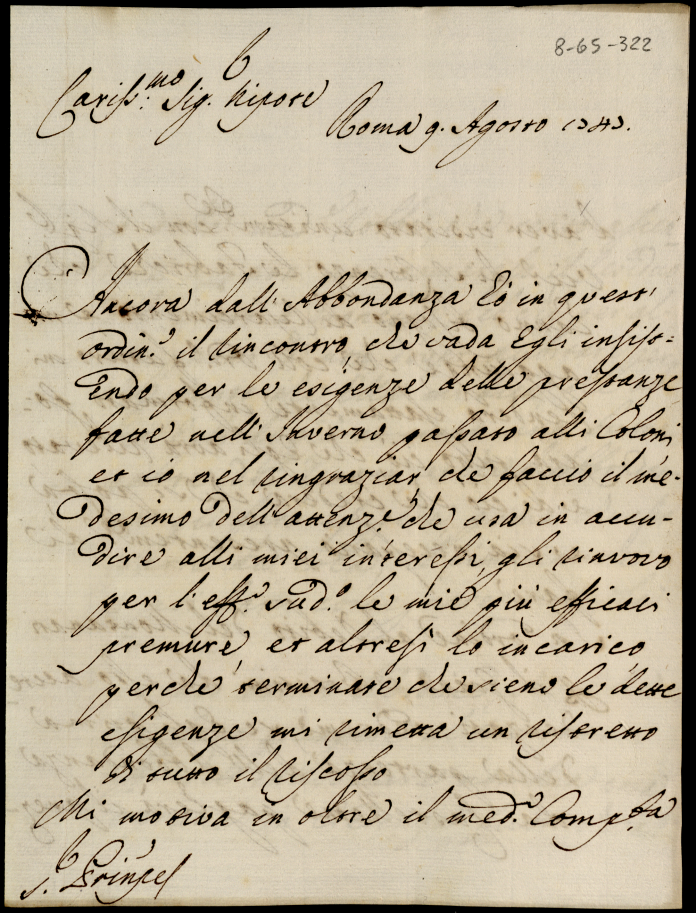 8-65-322
Cariss:mo Sig. Nipote
Roma 9. Agosto 1743.
Ancora dall'Abbondanza hò in quest'
ordin.o il rincontro, che vada Egli insist=
endo per le esigenze delle prestanze
fatte nell'Inverno passato alli Coloni
et io nel ringraziar, che faccio il me-
desimo dell'attenz.e che usa in accu-
dire alli miei interessi, gli rinovo
per l'eff.o sud.o le mie più efficaci
premure, et altresì lo incarico
perche terminate che sieno le dette
esigenze mi rimetta un ristretto
di tutto il riscosso
Mi motiva in oltre il med.o Comp.sta
S.